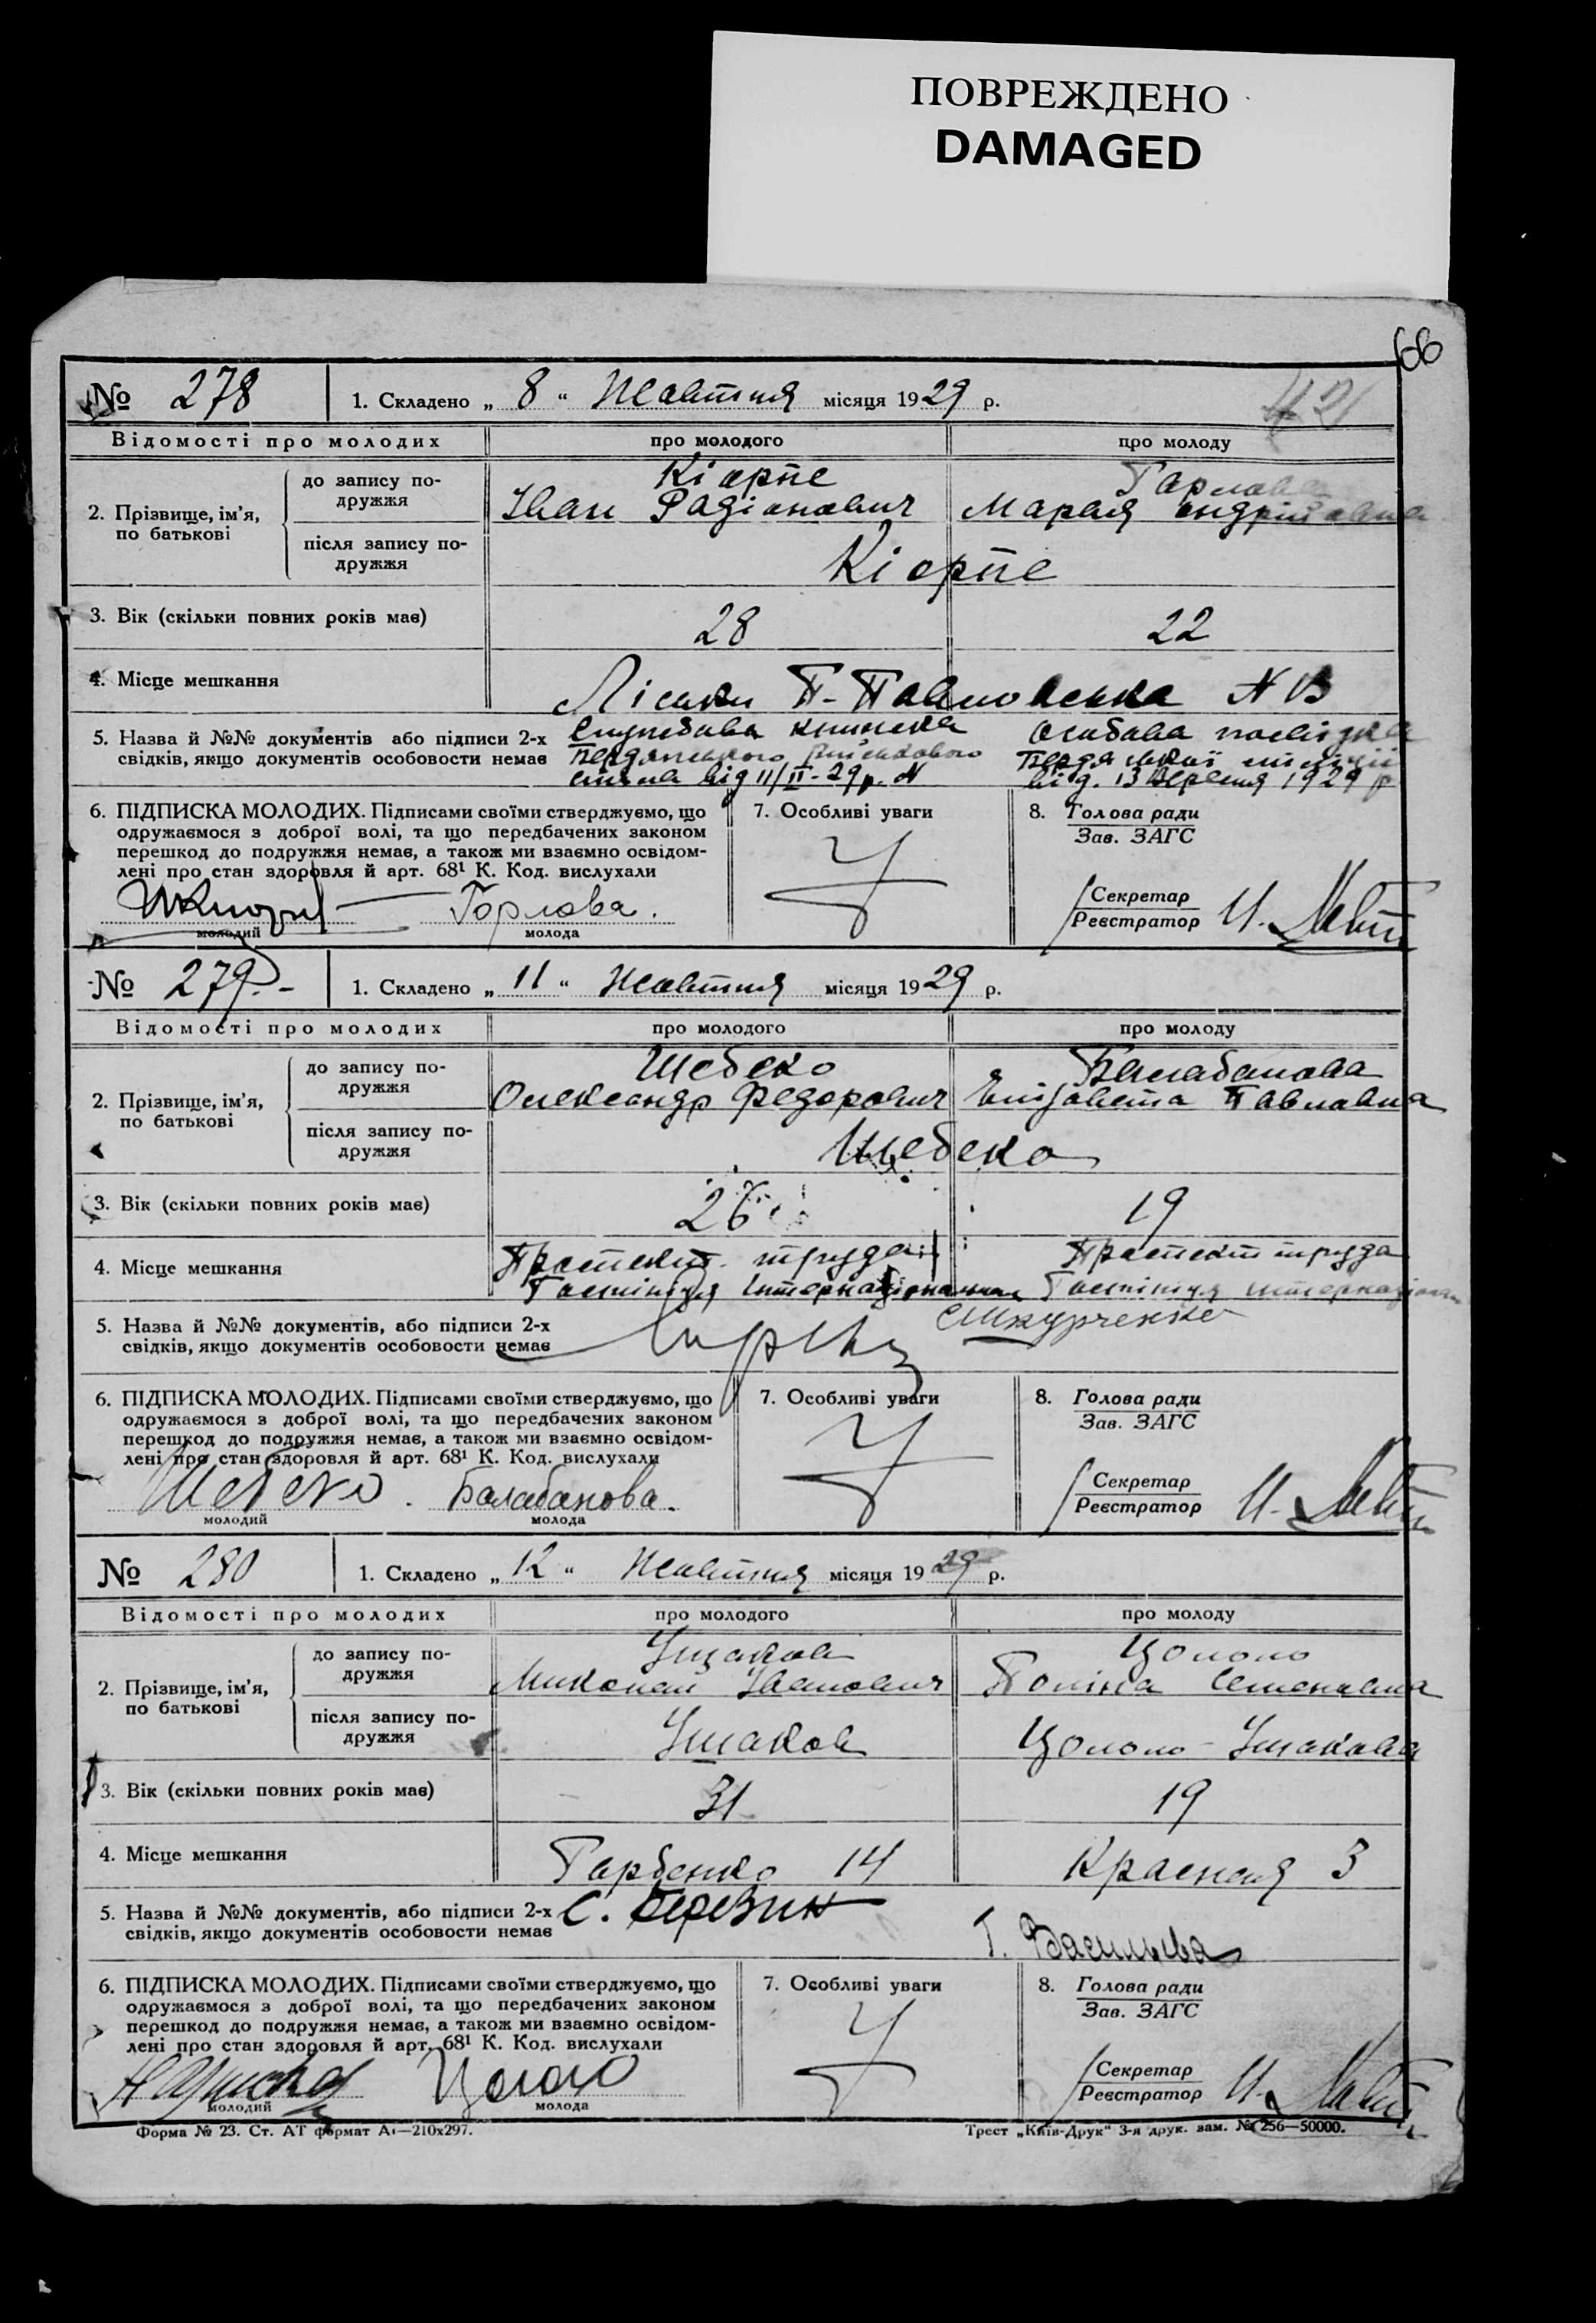 ПОВРЕЖДЕНО
DAMAGED
66
№ 278 1. Складено „ 8 “ Жовтня місяця 1929 р.
Відомості про молодих про молодого про молоду
2. Прізвище, ім’я, по батькові
до запису подружжя
Кіорпе
Іван Радіонович
Марія
після запису подружжя
Кіорпе
3. Вік (скільки повних років має) 28 22
4. Місце мешкання Ліски
5. Назва й №№ документів або підписи 2-х
свідків, якщо документів особовости немає
Службова книжка
від 11/II-29 р. №
Особова посвідка
від. 13 Вересня 1929 р
6. ПІДПИСКА МОЛОДИХ. Підписами своїми стверджуємо, що
одружаємося з доброї волі, та що передбачених законом
перешкод до подружжя немає, а також ми взаємно освідом-
лені про стан здоровля й арт. 68¹ К. Код. вислухали
Горлова.
молодий молода
7. Особливі уваги
8. Голова ради
Зав. ЗАГС
Секретар
Реєстратор
№ 279.- 1. Складено „ 11 “ Жовтня місяця 1929 р.
Відомості про молодих про молодого про молоду
2. Прізвище, ім’я, по батькові
до запису подружжя
Шебеко Балабанова
Олександр Федорович Єлізавета Павловна
після запису подружжя
Шебеко
3. Вік (скільки повних років має) 26 19
4. Місце мешкання
Проспект труда Проспект труда
Гостініця Інтернаціональна Гостініця
5. Назва й №№ документів, або підписи 2-х
свідків, якщо документів особовости немає
6. ПІДПИСКА МОЛОДИХ. Підписами своїми стверджуємо, що
одружаємося з доброї волі, та що передбачених законом
перешкод до подружжя немає, а також ми взаємно освідом-
лені про стан здоровля й арт. 68¹ К. Код. вислухали
Шебеко. Балабанова.
молодий молода
7. Особливі уваги
8. Голова ради
Зав. ЗАГС
Секретар
Реєстратор
№ 280 1. Складено „ 12 “ Жовтня місяця 1929 р.
Відомості про молодих про молодого про молоду
2. Прізвище, ім’я, по батькові
до запису подружжя
Ушаков Цололо
Миколай Іванович Поліна Семеновна
після запису подружжя
Ушаков Цололо-Ушакова
3. Вік (скільки повних років має) 31 19
4. Місце мешкання Горбенко 14 Красная 3
5. Назва й №№ документів, або підписи 2-х
свідків, якщо документів особовости немає
С. Березин
Г. Васильева
6. ПІДПИСКА МОЛОДИХ. Підписами своїми стверджуємо, що
одружаємося з доброї волі, та що передбачених законом
перешкод до подружжя немає, а також ми взаємно освідом-
лені про стан здоровля й арт. 68¹ К. Код. вислухали
молодий молода
7. Особливі уваги
8. Голова ради
Зав. ЗАГС
Секретар
Реєстратор
Форма № 23. Ст. АТ формат А₄—210х297.
Трест „Київ-Друк“ 3-я друк. зам. № 256—50000.